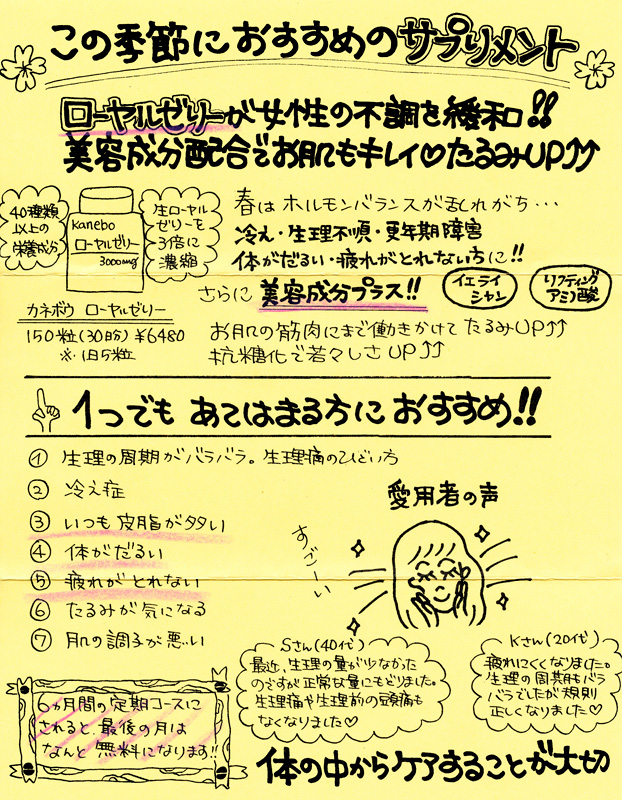 この季節におすすめのサプリメント
ローヤルゼリーが女性の不調を緩和!!
美容成分配合でお肌もキレイ♡たるみUP⤴⤴
40種類
以上の
栄養成分
Kanebo
ローヤルゼリー
3000mg
生ローヤル
ゼリーを
3倍に
濃縮
春はホルモンバランスが乱れがち…
冷え・生理不順・更年期障害
体がだるい・疲れがとれない方に!!
さらに 美容成分プラス!!
イエライ
シャン
リフティング
アミノ酸
カネボウ ローヤルゼリー
150粒(30日分) ¥6480
※1日5粒
お肌の筋肉にまで働きかけて たるみUP⤴⤴
抗糖化で若々しさUP⤴⤴
1つでも あてはまる方に おすすめ!!
① 生理の周期がバラバラ。生理痛のひどい方
② 冷え症
③ いつも皮脂が多い
④ 体がだるい
⑤ 疲れがとれない
⑥ たるみが気になる
⑦ 肌の調子が悪い
愛用者の声
すごーい
Sさん(40代)
最近、生理の量が少なかった
のですが正常な量にもどりました。
生理痛や生理前の頭痛も
なくなりました♡
Kさん(20代)
疲れにくくなりました。
生理の周期もバラ
バラでしたが規則
正しくなりました♡
6ヵ月間の定期コースに
されると、最後の月は
なんと 無料になります!!
体の中からケアすることが大切